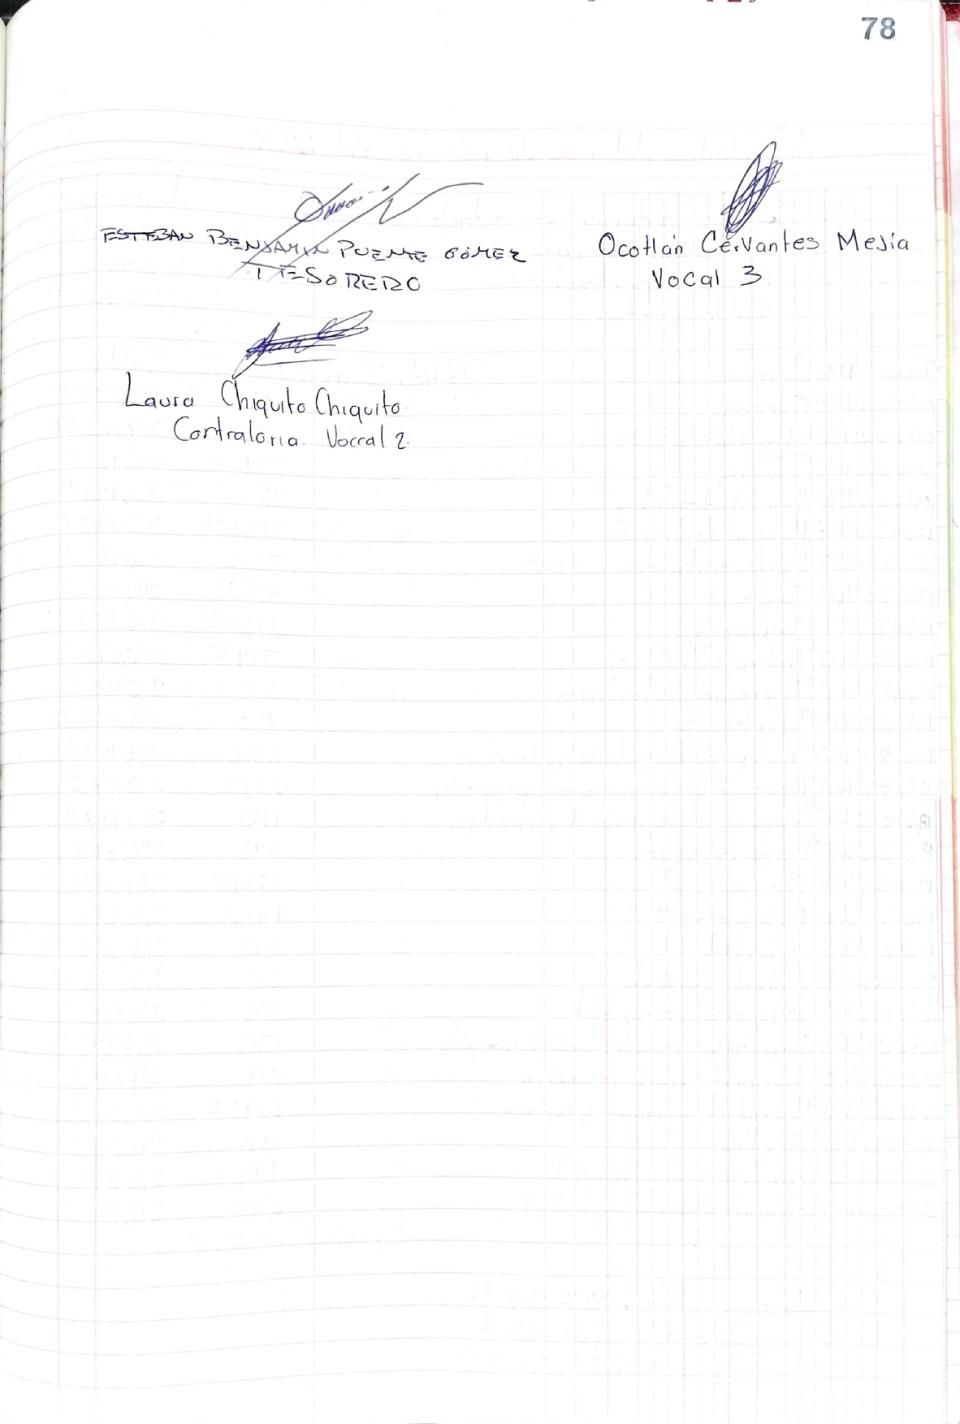 78
ESTEBAN BENJAMIN PUENTE GÓMEZ
TESORERO
Ocotlán Cervantes Mejia
Vocal 3
Laura Chiquito Chiquito
Contraloria Vocral 2